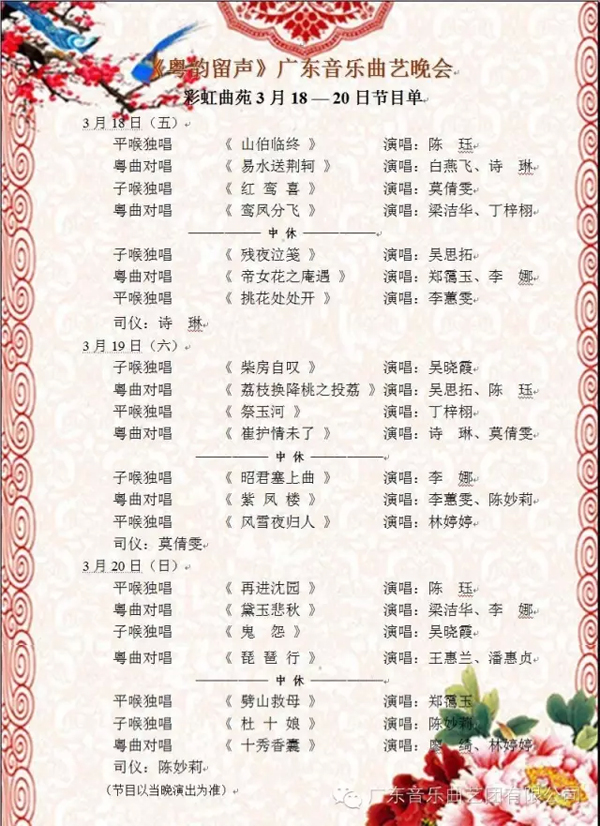 《粤韵留声》广东音乐曲艺晚会
彩虹曲苑3月18—20日节目单
3月18日（五）
平喉独唱 《 山伯临终 》 演唱：陈 珏
粤曲对唱 《 易水送荆轲 》 演唱：白燕飞、诗 琳
子喉独唱 《 红 鸾 喜 》 演唱：莫倩雯
粤曲对唱 《 鸾凤分飞 》 演唱：梁洁华、丁梓栩
中 休
子喉独唱 《 残夜泣笺 》 演唱：吴思拓
粤曲对唱 《 帝女花之庵遇 》 演唱：郑霭玉、李 娜
平喉独唱 《 挑花处处开 》 演唱：李蕙雯
司仪：诗 琳
3月19日（六）
子喉独唱 《 柴房自叹 》 演唱：吴晓霞
粤曲对唱 《 荔枝换降桃之投荔 》演唱：吴思拓、陈 珏
平喉独唱 《 祭玉河 》 演唱：丁梓栩
粤曲对唱 《 崔护情未了 》 演唱：诗 琳、莫倩雯
中 休
子喉独唱 《 昭君塞上曲 》 演唱：李 娜
粤曲对唱 《 紫 凤 楼 》 演唱：李蕙雯、陈妙莉
平喉独唱 《 风雪夜归人 》 演唱：林婷婷
司仪：莫倩雯
3月20日（日）
平喉独唱 《 再进沈园 》 演唱：陈 珏
粤曲对唱 《 黛玉悲秋 》 演唱：梁洁华、李 娜
子喉独唱 《 鬼 怨 》 演唱：吴晓霞
粤曲对唱 《 琵 琶 行 》 演唱：王惠兰、潘惠贞
中 休
平喉独唱 《 劈山救母 》 演唱：郑霭玉
子喉独唱 《 杜 十 娘 》 演唱：陈妙莉
粤曲对唱 《 十秀香囊 》 演唱：廖 绮、林婷婷
司仪：陈妙莉
（节目以当晚演出为准）
广东音乐曲艺团有限公司